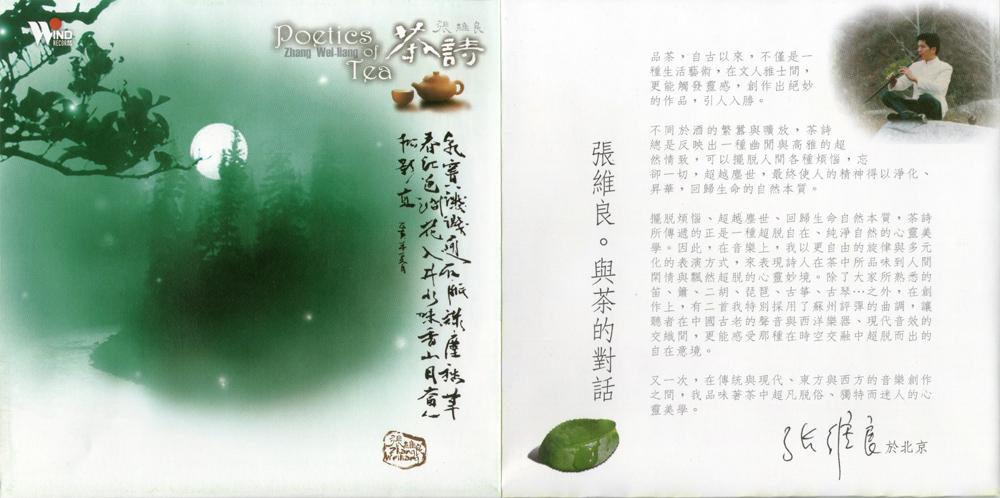 WIND
RECORDS
Poetics
of
Tea
Zhang Wei-liang
張維良
茶詩
張維良
Zhang
Weiliang
張維良。與茶的對話
品茶，自古以來，不僅是一
種生活藝術，在文人雅士間，
更能觸發靈感，創作出絕妙
的作品，引人入勝。
不同於酒的繁囂與曠放，茶詩
總是反映出一種幽閒與高雅的超
然情致，可以擺脫人間各種煩惱，忘
卻一切，超越塵世，最終使人的精神得以淨化、
昇華，回歸生命的自然本質。
擺脫煩惱、超越塵世、回歸生命自然本質，茶詩
所傳遞的正是一種超脫自在、純淨自然的心靈美
學。因此，在音樂上，我以更自由的旋律與多元
化的表演方式，來表現詩人在茶中所品味到人間
閑情與飄然超脫的心靈妙境。除了大家所熟悉的
笛、簫、二胡、琵琶、古箏、古琴…之外，在創
作上，有二首我特別採用了蘇州評彈的曲調，讓
聽者在中國古老的聲音與西洋樂器、現代音效的
交織間，更能感受那種在時空交融中超脫而出的
自在意境。
又一次，在傳統與現代、東方與西方的音樂創作
之間，我品味著茶中超凡脫俗、獨特而迷人的心
靈美學。
張維良於北京